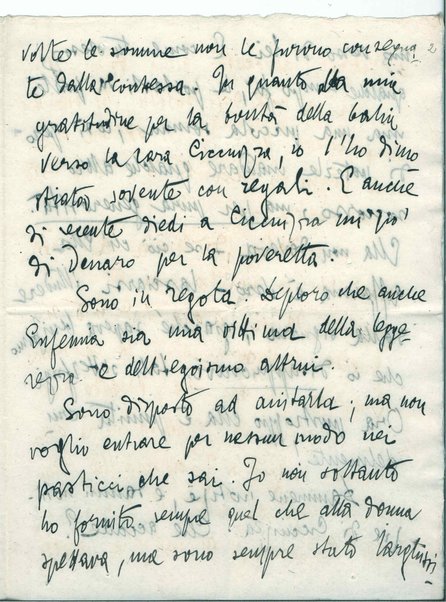 volte le somme non le furono consegna-
te dalla contessa. In quanto alla mia
gratitudine per la bontà della balia
verso la cara Cicciuzza, io l'ho dimo
strata sovente con regali. E anche
di recente diedi a Cicciuzza un po'
di Denaro per la poveretta.
Sono in regola. Deploro che anche
sia una vittima della legge-
rezza e dell'egoismo altrui.
Sono disposto ad aiutarla; ma non
voglio entrare per nessun modo nei
pasticci che sai. Io non soltanto
ho fornito sempre quel che alla donna
spettava, ma sono sempre stato larghissi